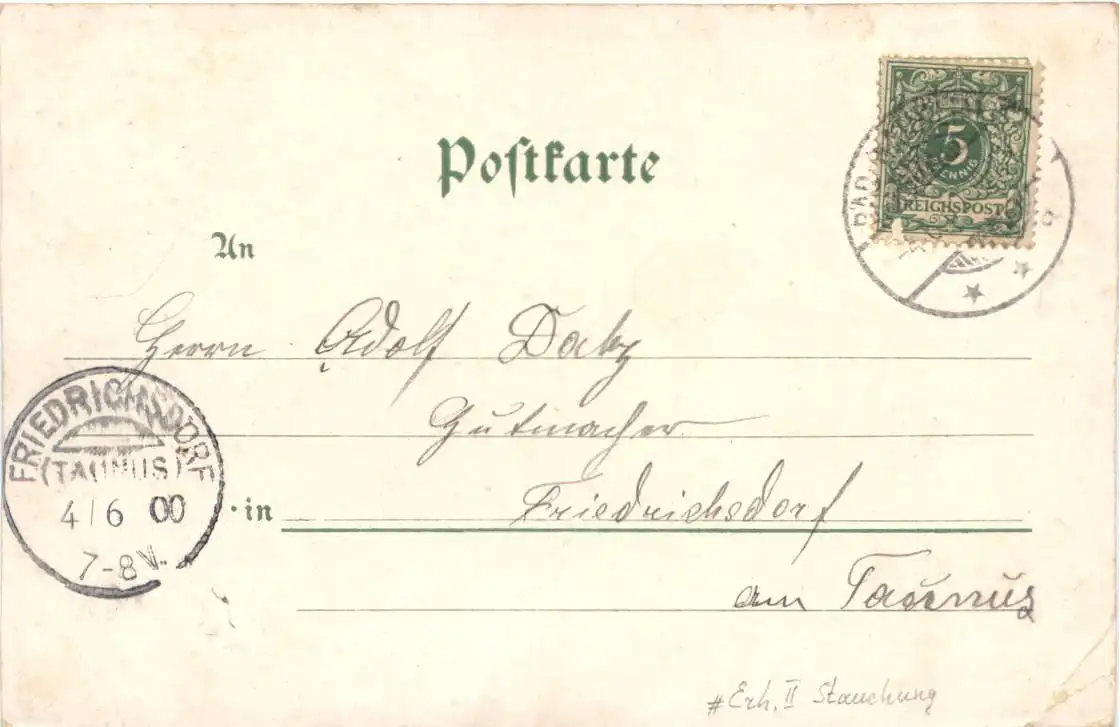 Postkarte
5
PFENNIG
REICHSPOST
BAD
An
Herrn Adolf Daby
Hutmacher
FRIEDRICHSDORF
(TAUNUS)
4/6 00
7-8 V.
in Friedrichsdorf
am Taunus
#Erh. II Stauchung